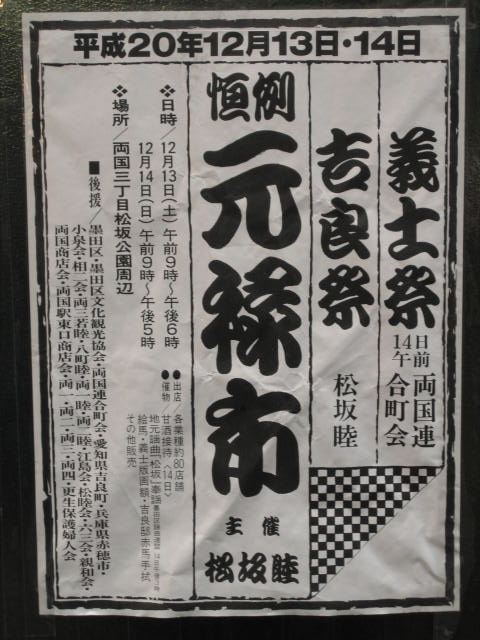 平成20年12月13日・14日
義士祭
14日
午前
両国連
合町会
吉良祭
松坂睦
恒例
元禄市
主催
松坂睦
❖日時/12月13日(土)午前9時〜午後6時
12月14日(日)午前9時〜午後5時
●出店 各業種約80店舗
●催物 甘酒接待〈14日〉
地元謡曲「松坂」奉謡
絵馬・義士版画額・吉良邸赤馬手拭
その他販売
❖場所/両国三丁目松坂公園周辺
■後援/墨田区・墨田区文化観光協会・両国連合町会・愛知県吉良町・兵庫県赤穂市・
小泉会・相二会・両三若睦・八町睦・両一睦・両二睦・江島会・松睦会・六三会・親和会・
両国商店会・両国駅東口商店会・両一・両二・両三・両四・更生保護婦人会